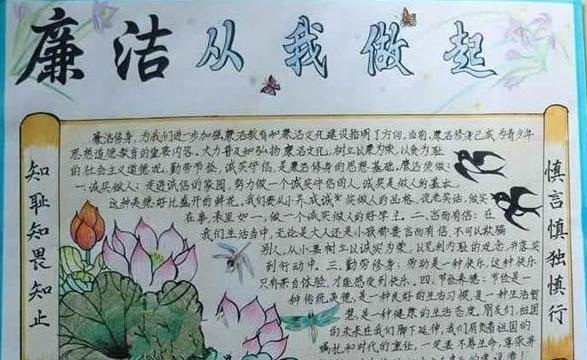 廉洁从我做起
知耻知畏知止
廉洁修身,为我们进一步加强廉洁教育和廉洁文化建设指明了方向。当前,廉洁修身已成为青少年
思想道德教育的重要内容。大力普及和弘扬廉洁文化,树立以廉为荣,以贪为耻
的社会主义道德观,勤劳节俭,诚实守信,是廉洁修身的思想基础。廉洁须做:
一.诚实做人:走进诚信的家园,努力做一个诚实守信的人,诚实是做人的基本。
这种美德好比盛开的鲜花,我们要从小养成诚实做人的品格,说老实话,做实
在事,表里如一,做一个诚实做人的好学生。二.言而有信:在
我们生活当中,无论是大人还是小孩都要言而有信,不可以欺骗
别人,从小要树立以诚实为荣,以见利为耻的观念,并落实
到行动中。三.勤劳修身:劳动是一种快乐,这种快乐
只有亲自体验,才能感受到快乐。四.节俭美德:节俭是一
种传统美德,是一种良好的生活习惯,是一种生活智
慧,是一种健康的生活态度,朋友们,祖国
的未来在我们脚下延伸,我们肩负着祖国的
腾飞和时代的重任,一定要不辱生命,尊崇并
慎言慎独慎行